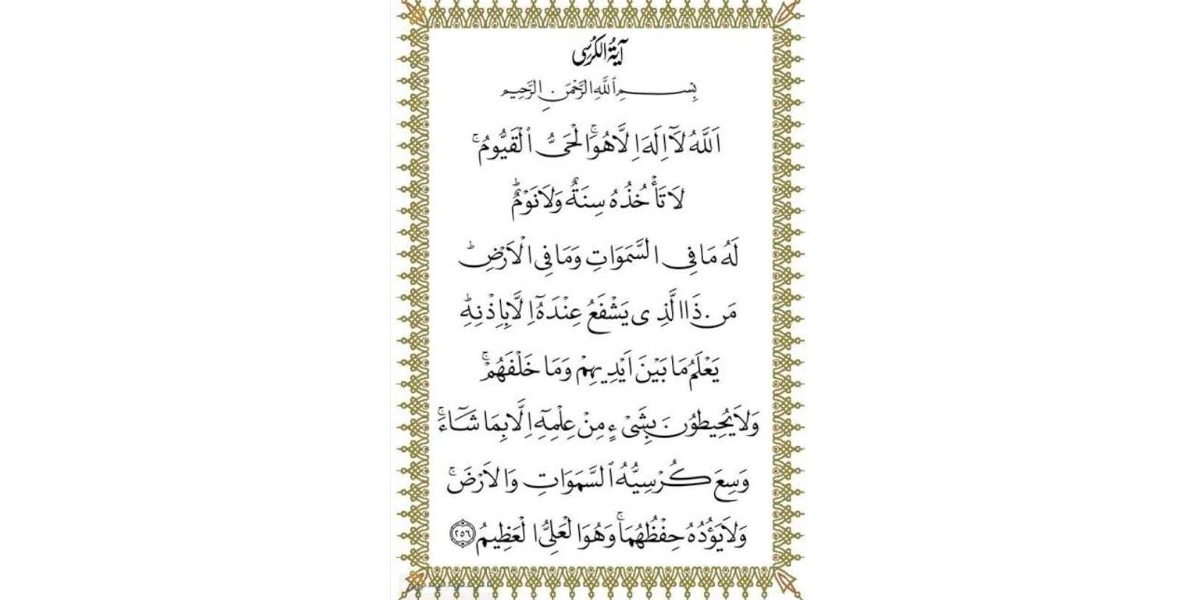 آيَةُ الكُرْسِى
بِسْــــــمِ ٱللَّهِ الرَّحْمَنِ الرَّحِيمِ
اَللَّهُ لَآ اِلَهَ اِلَّا هُوَۚ الْحَىُّ ٱلْقَيُّومُۚ
لَا تَأْخُذُهُ سِنَةٌ وَلَا نَوْمٌۗ
لَهُ مَا فِى السَّمَوَاتِ وَمَا فِى الْاَرْضِۗ
مَنْ ذَا الَّذِى يَشْفَعُ عِنْدَهُٓ اِلَّا بِاِذْنِهِۗ
يَعْلَمُ مَا بَيْنَ اَيْدِيهِمْ وَمَا خَلْفَهُمْۚ
وَلَا يُحِيطُونَ بِشَىْءٍ مِنْ عِلْمِهِٓ اِلَّا بِمَا شَآءَۚ
وَسِعَ كُرْسِيُّهُ ٱلسَّمَوَاتِ وَالْاَرْضَۚ
وَلَا يَؤُدُهُ حِفْظُهُمَاۚ وَهُوَ الْعَلِىُّ الْعَظِيمُ ٢٥٦